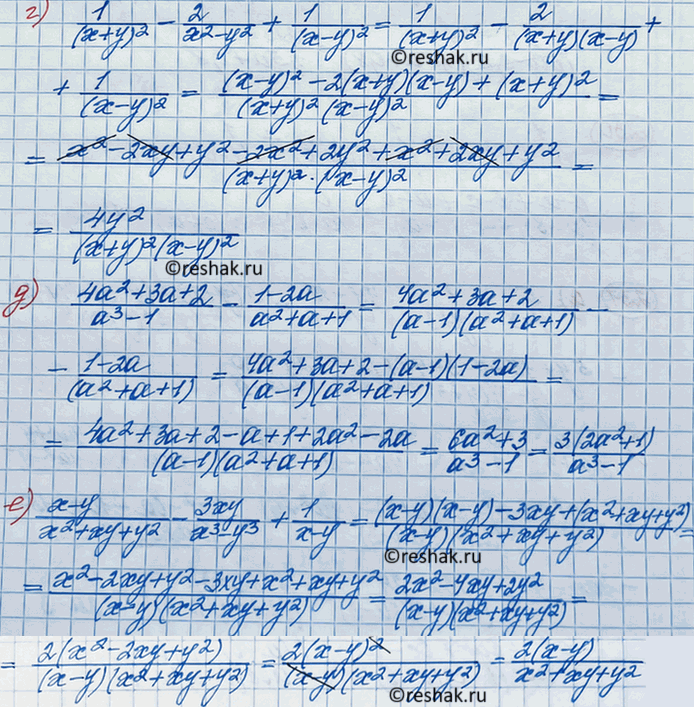 г) 1/(x+y)² - 2/(x²-y²) + 1/(x-y)² = 1/(x+y)² - 2/((x+y)(x-y)) +
+ 1/(x-y)² = ((x-y)² - 2(x+y)(x-y) + (x+y)²)/((x+y)²(x-y)²) =
= (x² - 2xy + y² - 2x² + 2y² + x² + 2xy + y²)/((x+y)²·(x-y)²) =
= 4y²/((x+y)²(x-y)²)
©reshak.ru
д) (4a²+3a+2)/(a³-1) - (1-2a)/(a²+a+1) = (4a²+3a+2)/((a-1)(a²+a+1)) -
- (1-2a)/(a²+a+1) = (4a²+3a+2-(a-1)(1-2a))/((a-1)(a²+a+1)) =
= (4a²+3a+2-a+1+2a²-2a)/((a-1)(a²+a+1)) = (6a²+3)/(a³-1) = 3(2a²+1)/(a³-1)
©reshak.ru
е) (x-y)/(x²+xy+y²) - 3xy/(x³-y³) + 1/(x-y) = ((x-y)(x-y)-3xy+(x²+xy+y²))/((x-y)(x²+xy+y²)) =
= (x²-2xy+y²-3xy+x²+xy+y²)/((x-y)(x²+xy+y²)) = (2x²-4xy+2y²)/((x-y)(x²+xy+y²)) =
= 2(x²-2xy+y²)/((x-y)(x²+xy+y²)) = 2(x-y)²/((x-y)(x²+xy+y²)) = 2(x-y)/(x²+xy+y²)
©reshak.ru